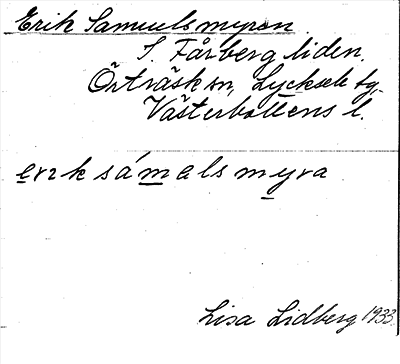 Erik Samuelsmyran
S. Fårbergsliden.
Örträsk sn, Lycksele tg.
Västerbottens l.
erik sámalsmyra
Lisa Lidberg 1933